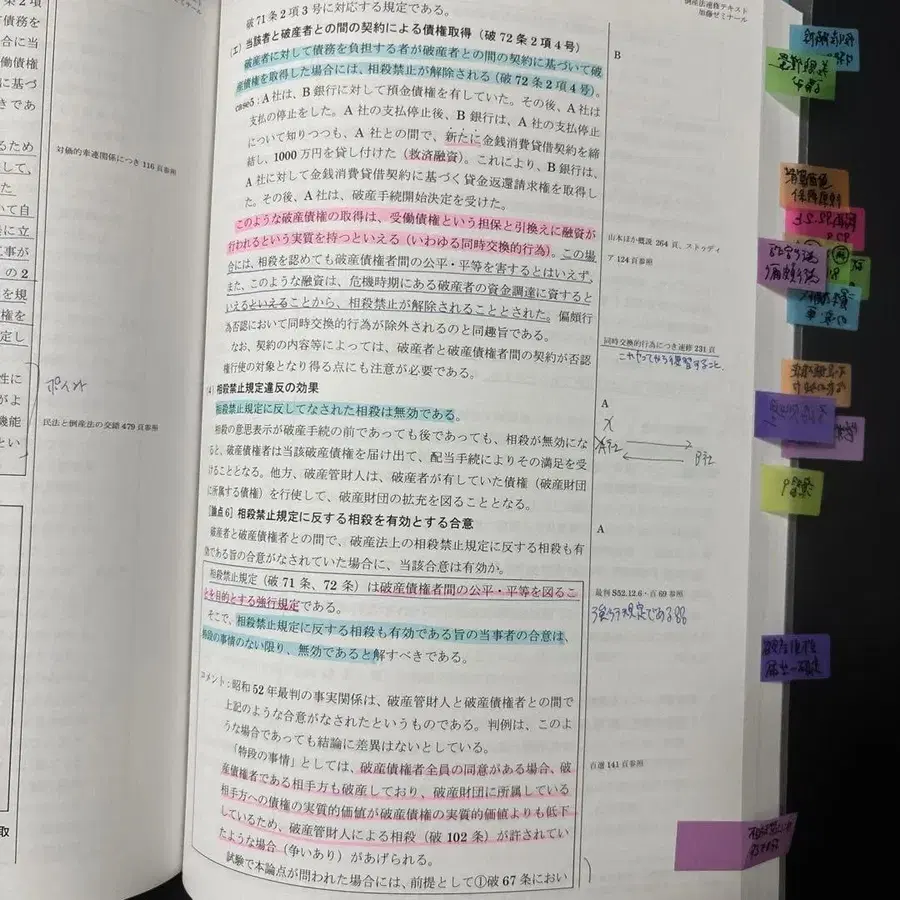 条２項
債務を
合に当
働債権
に基づ
きであ
るため
して、
た
いて自
実に立
工事が
の２
を規
権を
定し
対価的牽連関係につき 116 頁参照
ポイント
民法と倒産法の交錯 479 頁参照
性に
がよ
機能
とい
取
破 71 条２項３号に対応する規定である。
(エ) 当該者と破産者との間の契約による債権取得（破 72 条２項４号）
破産者に対して債務を負担する者が破産者との間の契約に基づいて破
産債権を取得した場合には、相殺禁止が解除される（破 72 条２項４号）。
case5：A 社は、B 銀行に対して預金債権を有していた。その後、A 社は
支払の停止をした。A 社の支払停止後、B 銀行は、A 社の支払停止
について知りつつも、A 社との間で、新たに金銭消費貸借契約を締
結し、1000 万円を貸し付けた（救済融資）。これにより、B 銀行は、
A 社に対して金銭消費貸借契約に基づく貸金返還請求権を取得し
た。その後、A 社は、破産手続開始決定を受けた。
このような破産債権の取得は、受働債権という担保と引換えに融資が
行われるという実質を持つといえる（いわゆる同時交換的行為）。この場
合には、相殺を認めても破産債権者間の公平・平等を害するとはいえず、
また、このような融資は、危機時期にある破産者の資金調達に資すると
いえるといえることから、相殺禁止が解除されることとされた。偏頗行
為否認において同時交換的行為が除外されるのと同趣旨である。
なお、契約の内容等によっては、破産者と破産債権者間の契約が否認
権行使の対象となり得る点にも注意が必要である。
(4) 相殺禁止規定違反の効果
相殺禁止規定に反してなされた相殺は無効である。
相殺の意思表示が破産手続の前であっても後であっても、相殺が無効にな
ると、破産債権者は当該破産債権を届け出て、配当手続によりその満足を受
けることとなる。他方、破産管財人は、破産者が有していた債権（破産財団
に所属する債権）を行使して、破産財団の拡充を図ることとなる。
[論点６] 相殺禁止規定に反する相殺を有効とする合意
破産者と破産債権者との間で、破産法上の相殺禁止規定に反する相殺も有
効である旨の合意がなされていた場合に、当該合意は有効か。
相殺禁止規定（破 71 条、72 条）は破産債権者間の公平・平等を図るこ
とを目的とする強行規定である。
そこで、相殺禁止規定に反する相殺も有効である旨の当事者の合意は、
特段の事情のない限り、無効であると解すべきである。
コメント：昭和 52 年最判の事実関係は、破産管財人と破産債権者との間で
上記のような合意がなされたというものである。判例は、このよ
うな場合であっても結論に差異はないとしている。
「特段の事情」としては、破産債権者全員の同意がある場合、破
産債権者である相手方も破産しており、破産財団に所属している
相手方への債権の実質的価値が破産債権の実質的価値よりも低下
しているため、破産管財人による相殺（破 102 条）が許されてい
たような場合（争いあり）があげられる。
試験で本論点が問われた場合には、前提として①破 67 条におい
倒産法速修テキスト
加藤ゼミナール
B
山本ほか概説 264 頁、ストゥディ
ア 124 頁参照
同時交換的行為につき速修 231 頁
これやってから復習すること。
A
X
A社
B社
A
最判 S52.12.6・百 69 参照
強行規定である
百選 141 頁参照